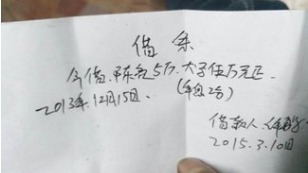 借条
今借陈亮5万.大字伍万元正
2013年.12月15日.（年息2分）
借款人.
2015.3.10日